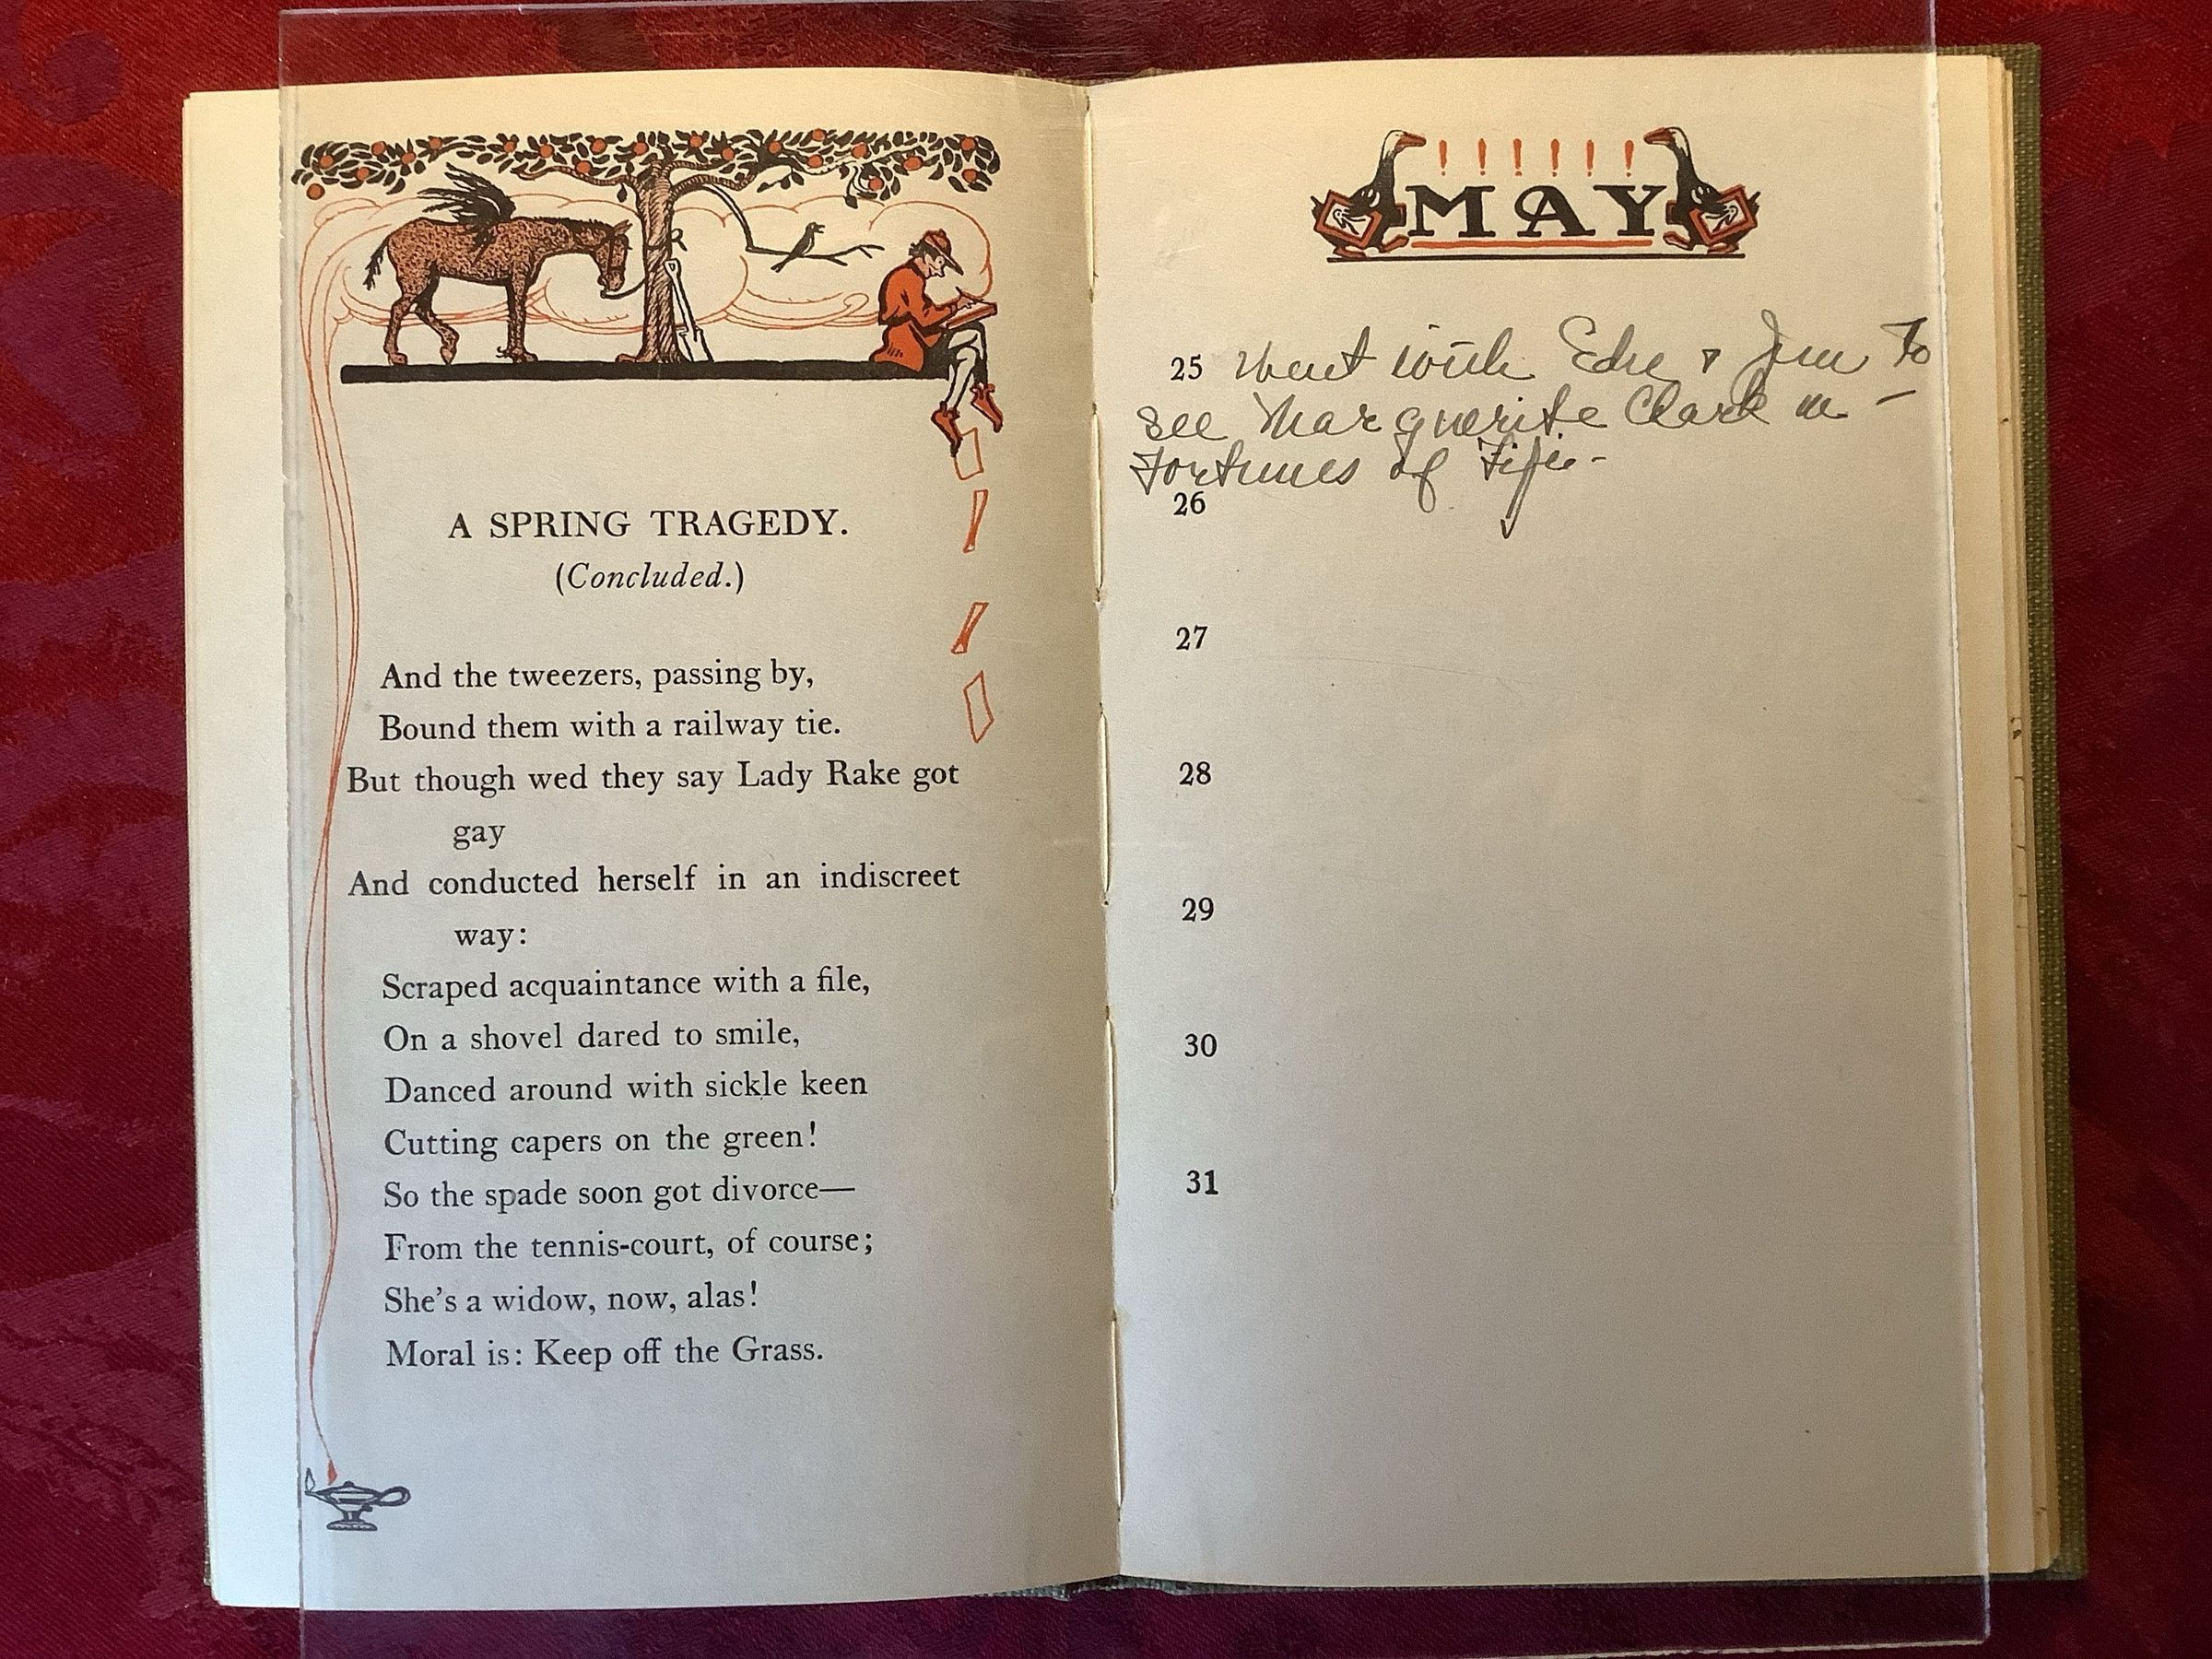 A SPRING TRAGEDY.
(Concluded.)
And the tweezers, passing by,
Bound them with a railway tie.
But though wed they say Lady Rake got
gay
And conducted herself in an indiscreet
way:
Scraped acquaintance with a file,
On a shovel dared to smile,
Danced around with sickle keen
Cutting capers on the green!
So the spade soon got divorce—
From the tennis-court, of course;
She's a widow, now, alas!
Moral is: Keep off the Grass.
! ! ! ! ! !
MAY
25 Went with & to
see Marguerite Clark in -
Fortunes of Fifi -
26
27
28
29
30
31